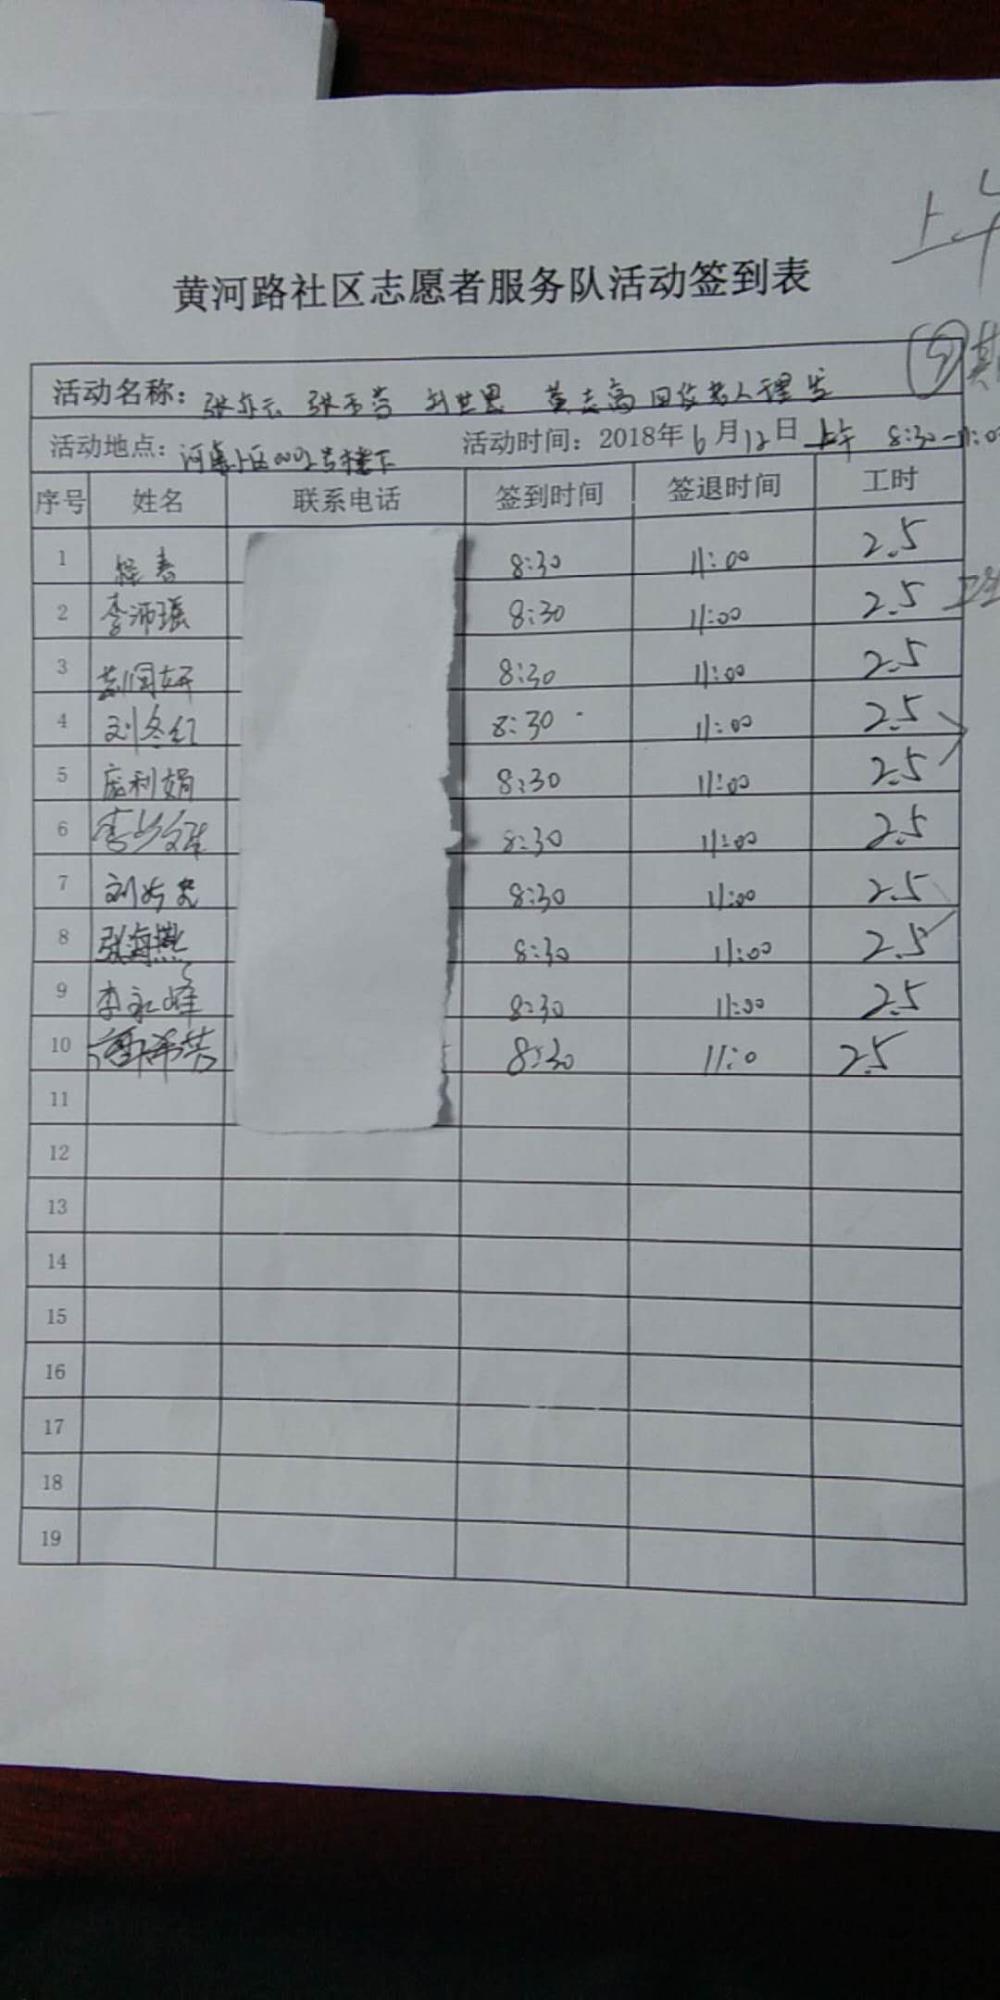 上午
黄河路社区志愿者服务队活动签到表
活动名称: 刘世恩 黄志高 四位老人理发
活动地点: 活动时间: 2018年6月12日 上午 8:30-11:00
序号 姓名 联系电话 签到时间 签退时间 工时
1 8:30 11:00 2.5
2 李沛瑶 8:30 11:00 2.5
3 8:30 11:00 2.5
4 刘冬红 8:30 11:00 2.5
5 庞利娟 8:30 11:00 2.5
6 8:30 11:00 2.5
7 8:30 11:00 2.5
8 张海燕 8:30 11:00 2.5
9 李永峰 8:30 11:00 2.5
10 8:30 11:0 2.5
11
12
13
14
15
16
17
18
19